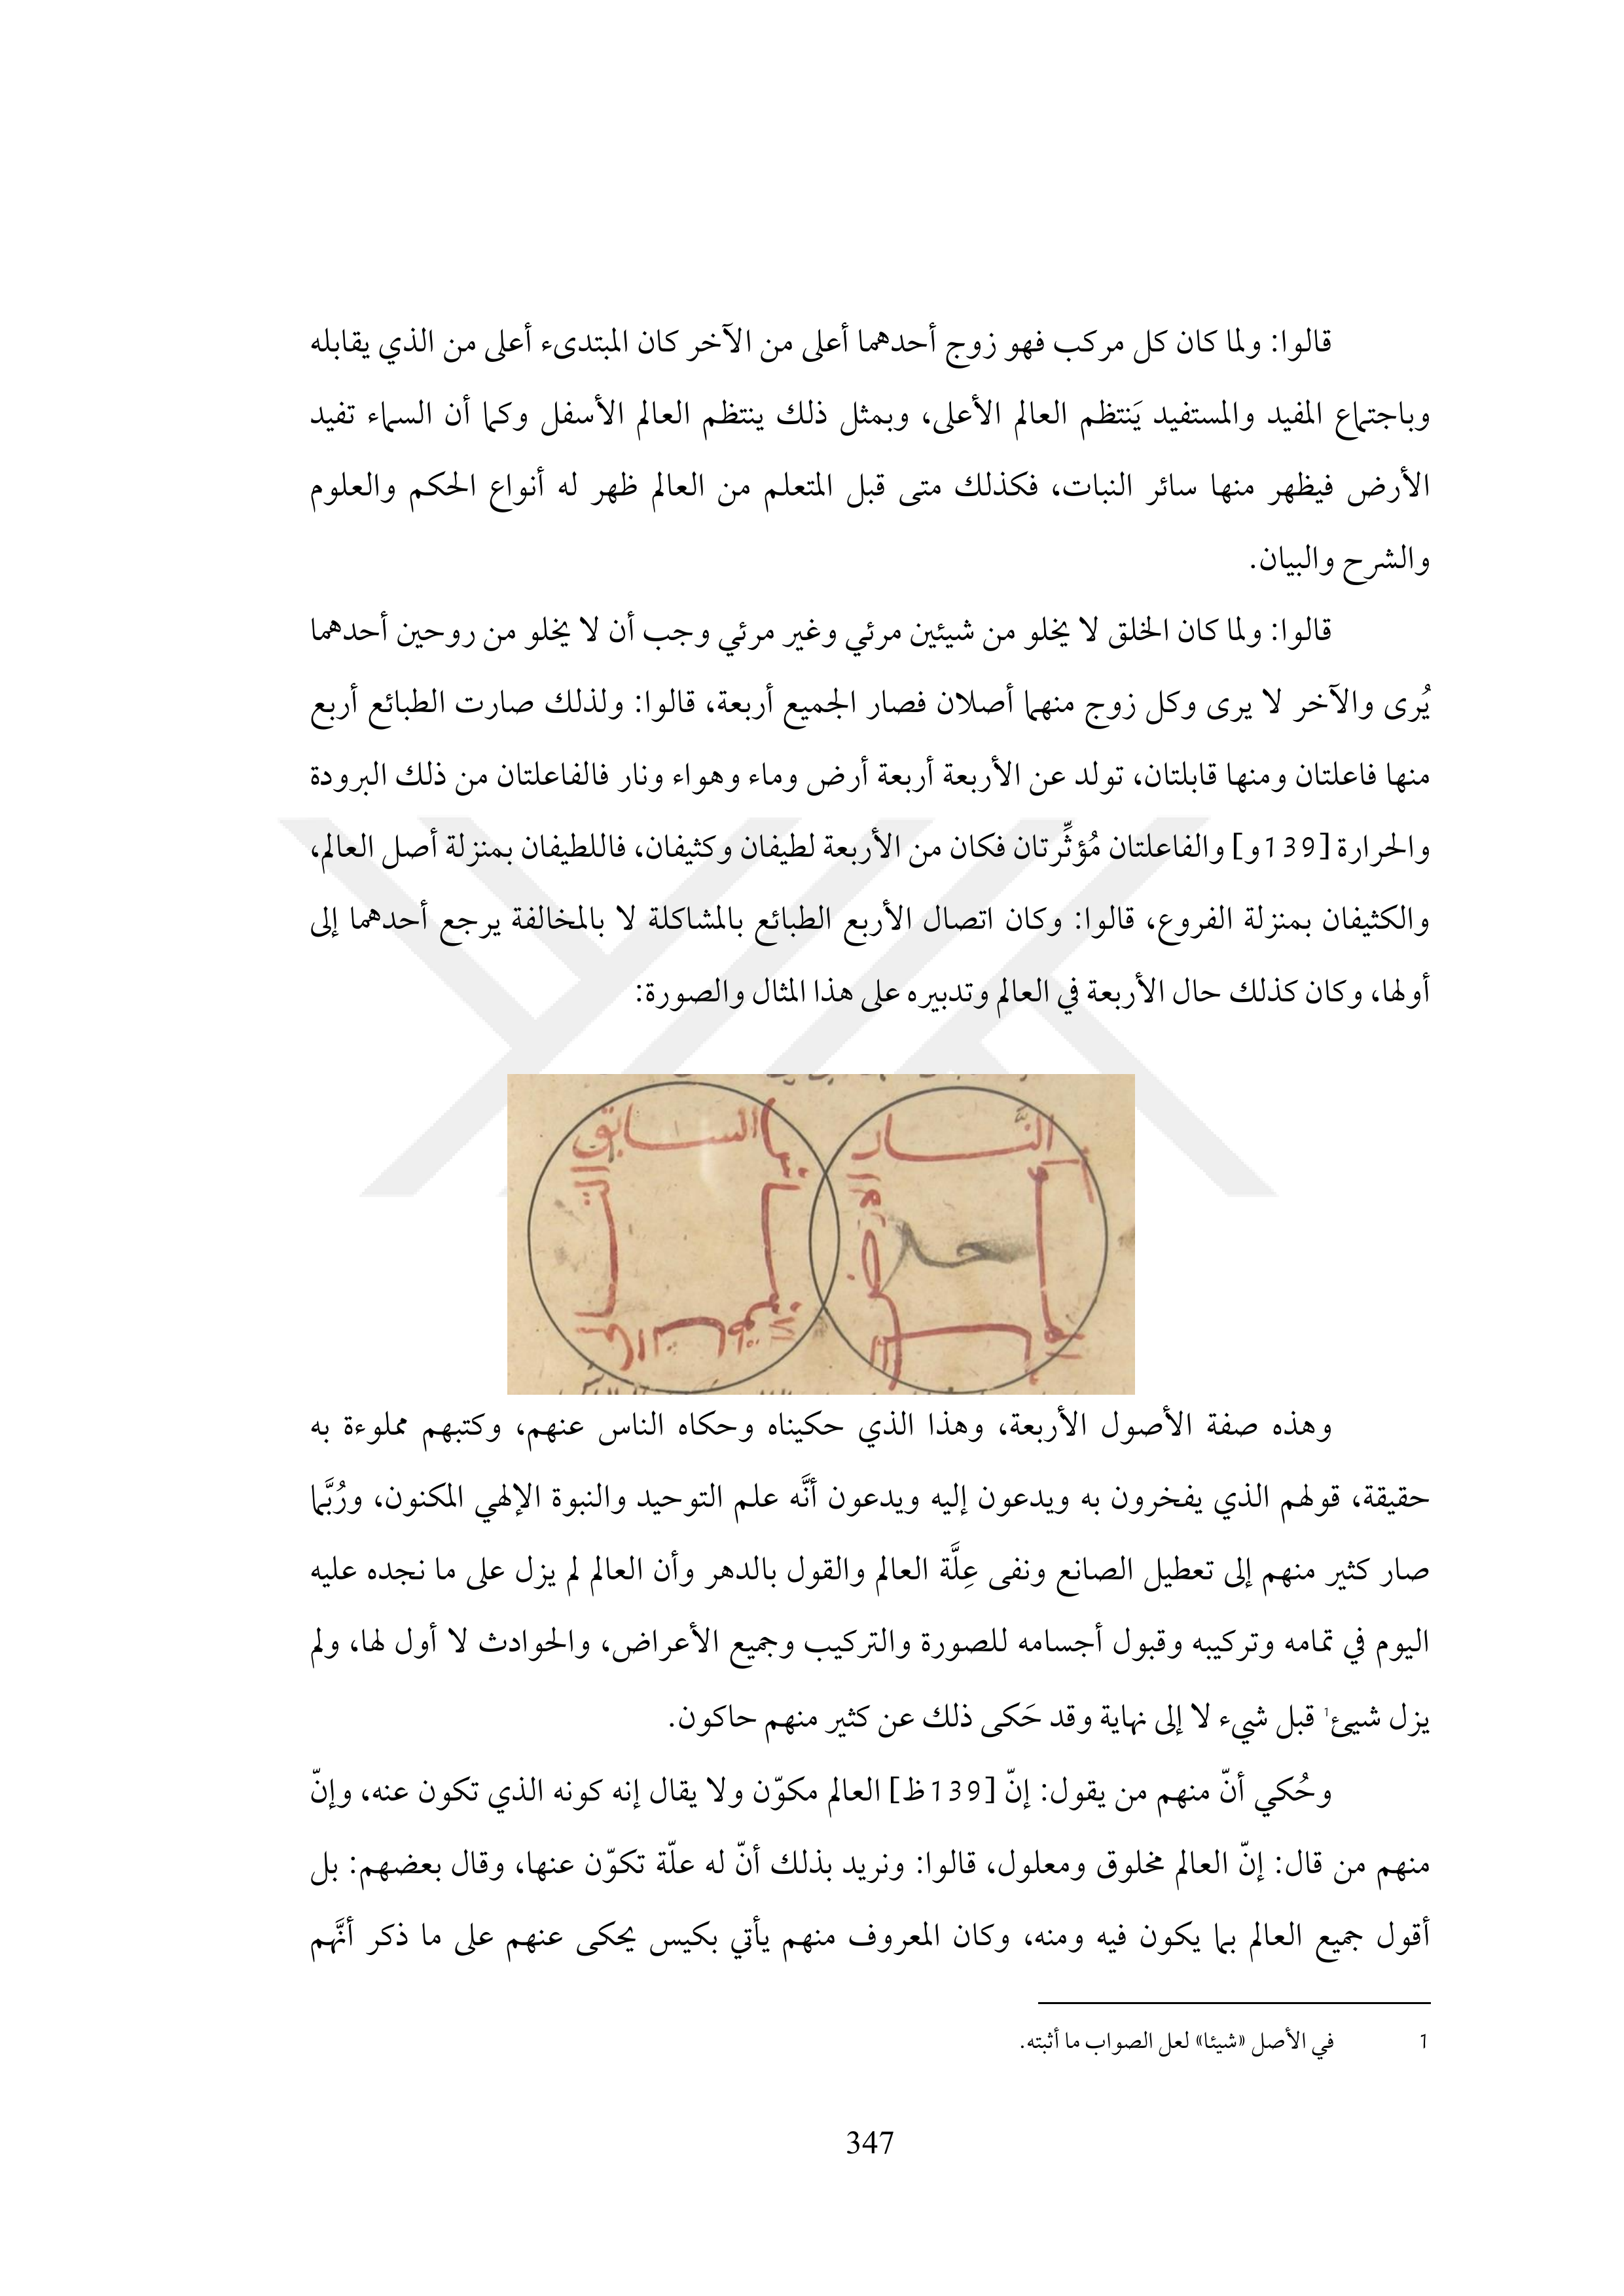 قالوا: ولما كان كل مركب فهو زوج أحدهما أعلى من الآخر كان المبتدىء أعلى من الذي يقابله
وباجتماع المفيد والمستفيد يَنتظم العالم الأعلى، وبمثل ذلك ينتظم العالم الأسفل وكما أن السماء تفيد
الأرض فيظهر منها سائر النبات، فكذلك متى قبل المتعلم من العالم ظهر له أنواع الحكم والعلوم
والشرح والبيان.
قالوا: ولما كان الخلق لا يخلو من شيئين مرئي وغير مرئي وجب أن لا يخلو من روحين أحدهما
يُرى والآخر لا يرى وكل زوج منهما أصلان فصار الجميع أربعة، قالوا: ولذلك صارت الطبائع أربع
منها فاعلتان ومنها قابلتان، تولد عن الأربعة أربعة أرض وماء وهواء ونار فالفاعلتان من ذلك البرودة
والحرارة [139و] والفاعلتان مُؤثِّرتان فكان من الأربعة لطيفان وكثيفان، فاللطيفان بمنزلة أصل العالم،
والكثيفان بمنزلة الفروع، قالوا: وكان اتصال الأربع الطبائع بالمشاكلة لا بالمخالفة يرجع أحدهما إلى
أولها، وكان كذلك حال الأربعة في العالم وتدبيره على هذا المثال والصورة:
النَّار
السابق
وهذه صفة الأصول الأربعة، وهذا الذي حكيناه وحكاه الناس عنهم، وكتبهم مملوءة به
حقيقة، قولهم الذي يفخرون به ويدعون إليه ويدعون أنَّه علم التوحيد والنبوة الإلهي المكنون، ورُبَّما
صار كثير منهم إلى تعطيل الصانع ونفى عِلَّة العالم والقول بالدهر وأن العالم لم يزل على ما نجده عليه
اليوم في تمامه وتركيبه وقبول أجسامه للصورة والتركيب وجميع الأعراض، والحوادث لا أول لها، ولم
يزل شييئ1 قبل شيء لا إلى نهاية وقد حَكى ذلك عن كثير منهم حاكون.
وحُكي أنّ منهم من يقول: إنّ [139ظ] العالم مكوّن ولا يقال إنه كونه الذي تكون عنه، وإنّ
منهم من قال: إنّ العالم مخلوق ومعلول، قالوا: ونريد بذلك أنّ له علّة تكوّن عنها، وقال بعضهم: بل
أقول جميع العالم بما يكون فيه ومنه، وكان المعروف منهم يأتي بكيس يحكى عنهم على ما ذكر أنَّهم
1 في الأصل «شيئا» لعل الصواب ما أثبته.
347